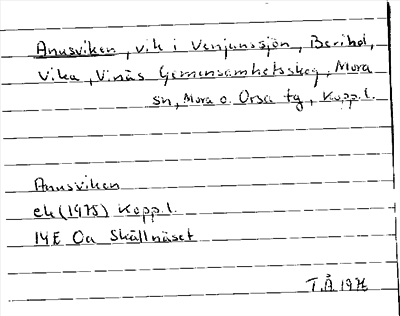 Anusviken, vik i Venjanssjön, Berihol,
Vika, Vinäs Gemensamhetsskog, Mora
sn, Mora o. Orsa tg, Kopp.l.
Anusviken
ek (1975) Kopp.l.
14E Oa Skällnäset
T.Å 1976